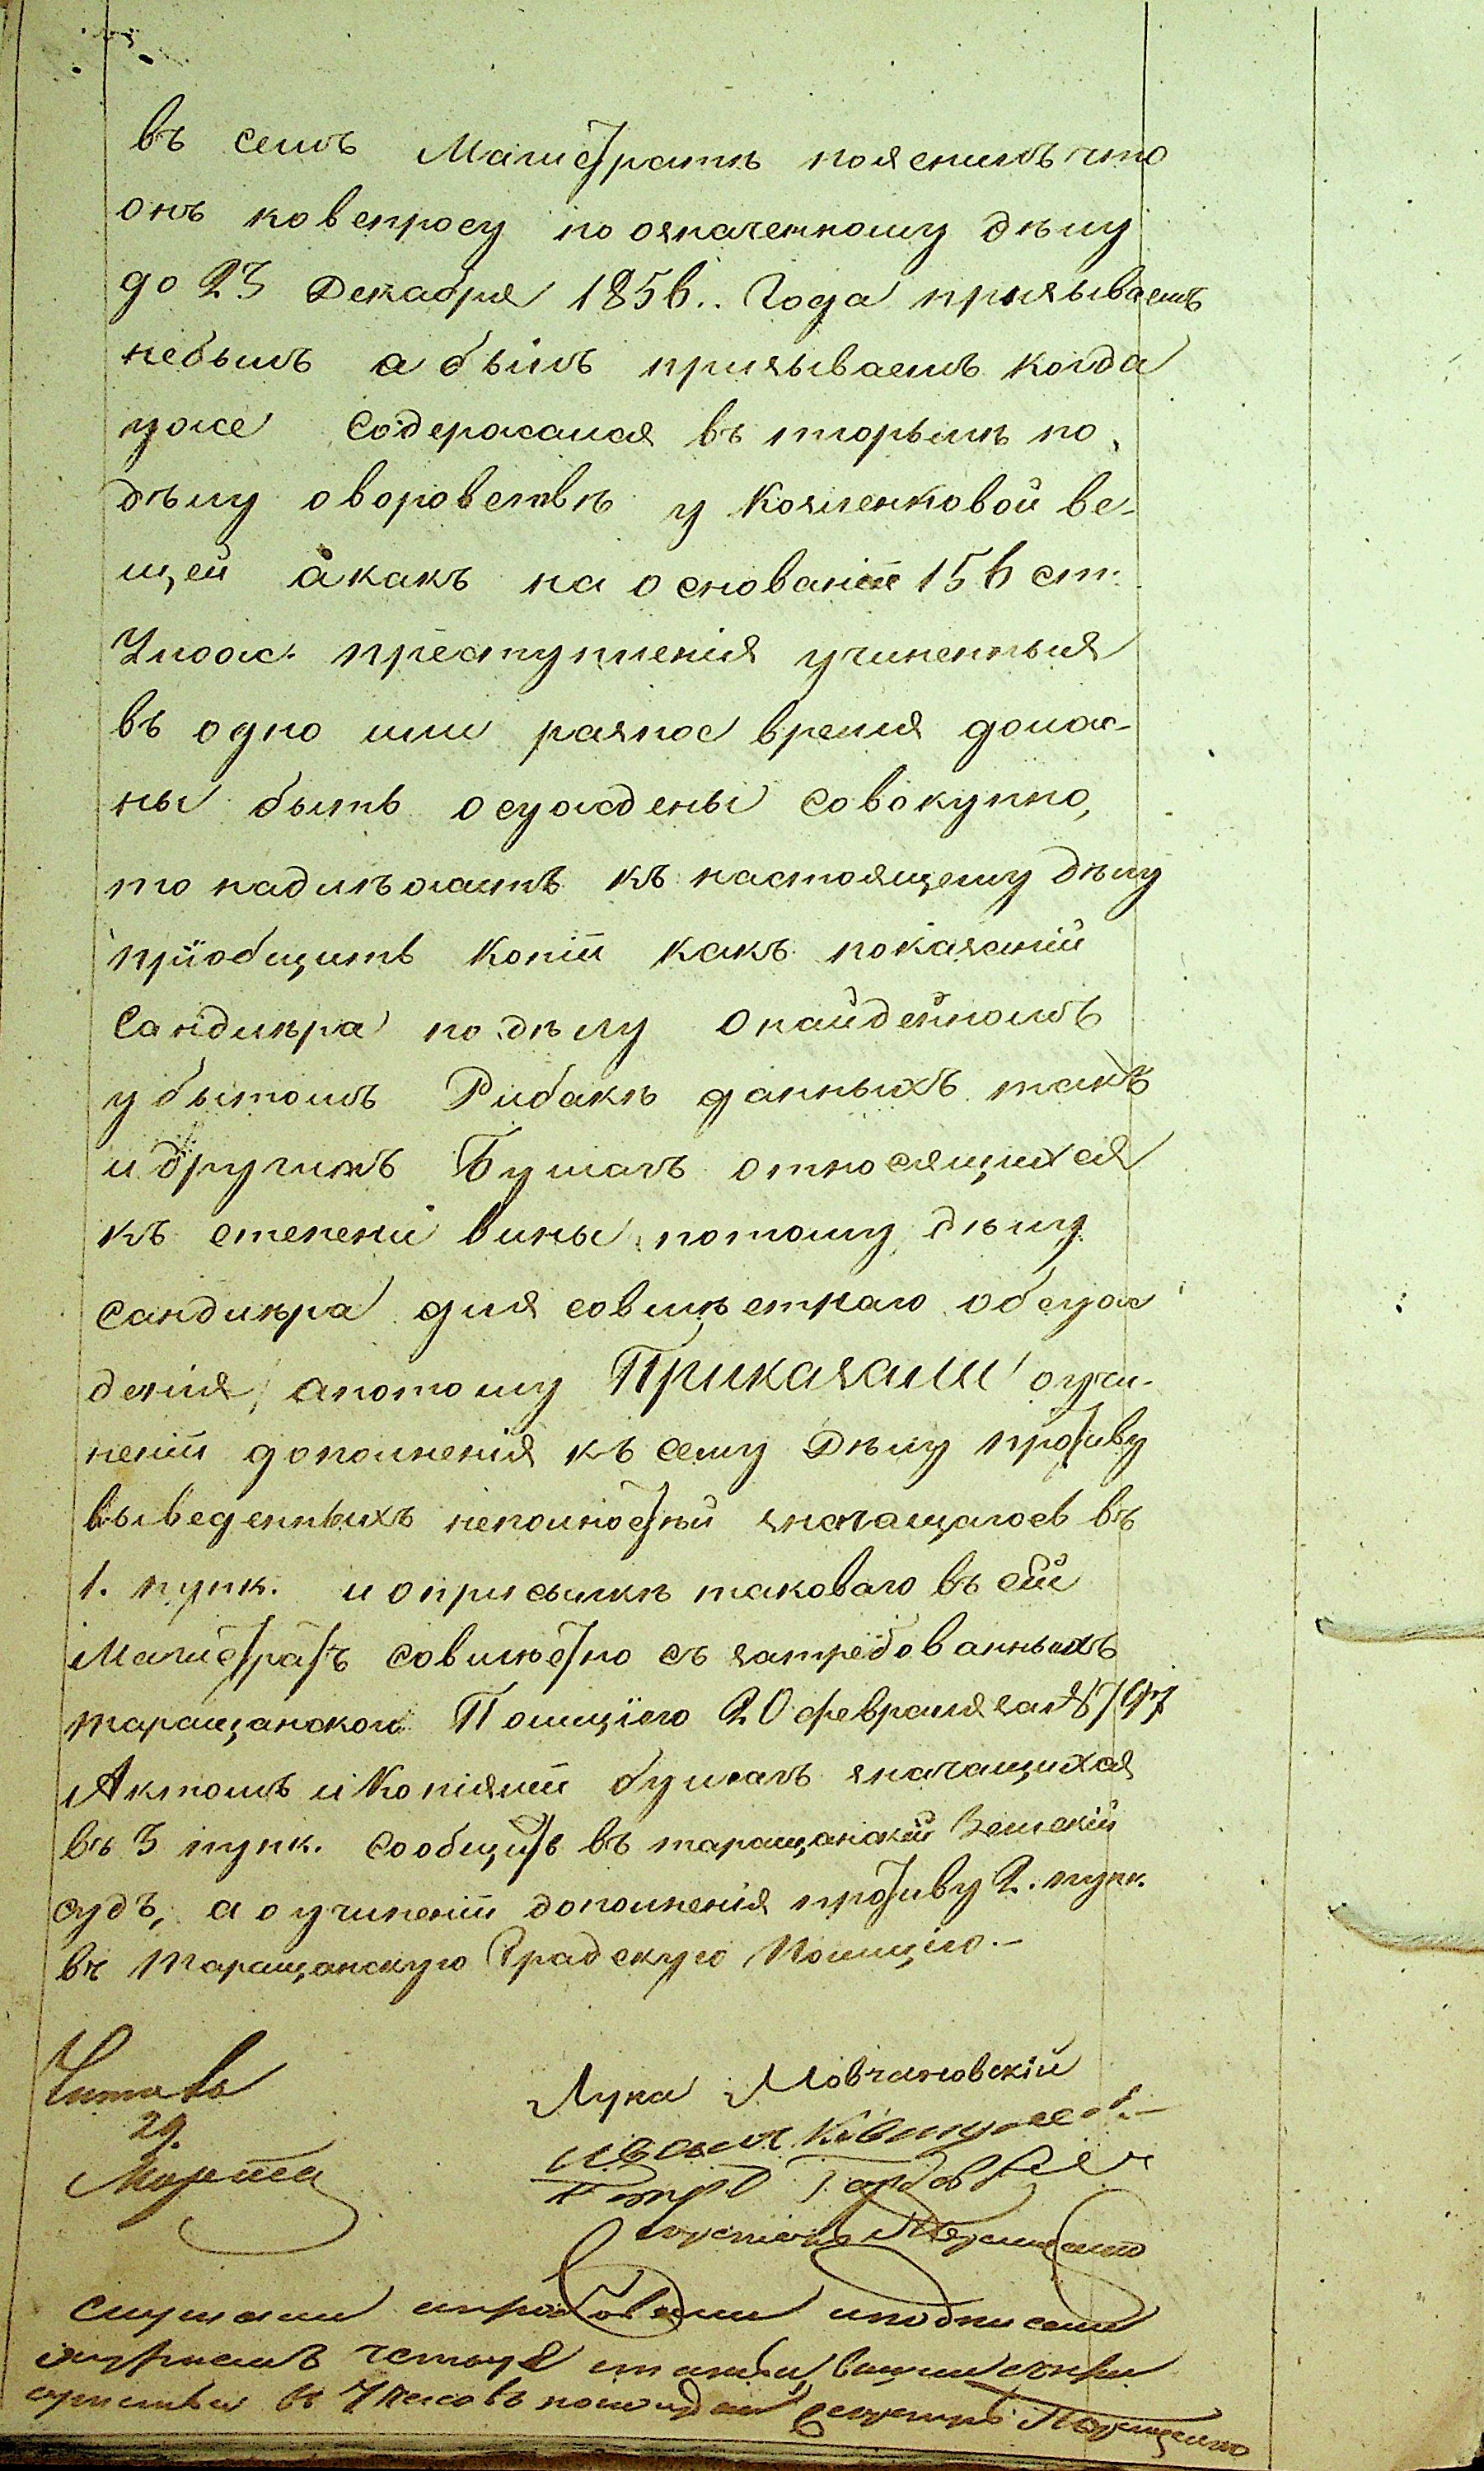 въ семъ Магистратѣ пояснилъ что
онъ ковспросу по означенному дѣлу
до 23 Декабря 1856.. Года призываемъ
небылъ а былъ призываемъ когда
уже содержался въ тюрьмѣ по
дѣлу оворовствѣ у Козленковой ве-
щей а какъ на основаніи 156 ст.
Улож. преступленія учиненныя
въ одно или разное время долж-
ны быть осуждены совокупно,
то надлѣжитъ къ настоящему дѣлу
пріобщить Копіи какъ показаній
Сандлѣра по дѣлу онайденномъ
убытомъ Рибакѣ данныхъ такъ
и другимъ Бумагъ относящихся
къ степени вины потому дѣлу
Сандлѣра для совмѣстнаго обсуж
денія, апотому Приказали оучи-
неніи дополненія къ сему дѣлу противу
выведенныхъ неполностей значащагось въ
1. пунк. и оприсылкѣ таковаго въ сей
Магистратъ совмѣстно съ затребованныхъ
таращанской Полиціею 20 февраля за№ 797
Актомъ и Копіями бумагъ значащихся
въ 3 пунк. Сообщить въ таращанскій Земскій
судъ, а о учиненіи дополненія противу 2. пунк.
въ Таращанскую Градскую Полицію.-
Читалъ
29.
Марта
Лука Мовчановскій
Иванъ
Петръ
слушали иподписали